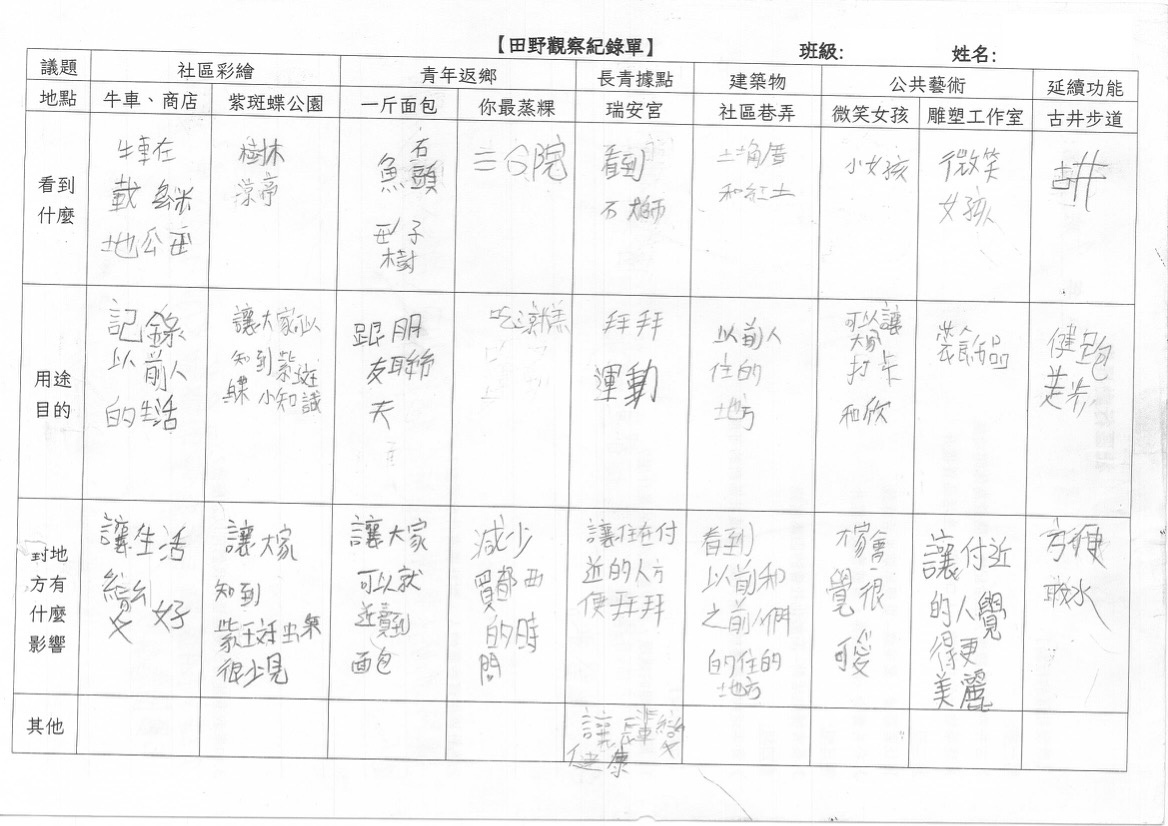 【田野觀察紀錄單】 班級: 姓名:
議題 社區彩繪 青年返鄉 長青據點 建築物 公共藝術 延續功能
地點 牛車、商店 紫斑蝶公園 一斤面包 你最蒸粿 瑞安宮 社區巷弄 微笑女孩 雕塑工作室 古井步道
看到
什麼
牛車在
載
地公
樹林
涼亭
石
魚頭
子
樹
三合院
看到
石大師
土埆厝
和紅土
小女孩
微笑
女孩
古井
用途
目的
記錄
以前人
的生活
讓大家可以
知到紫斑
蝶小知識
跟朋
友聯絡
吃
拜拜
運動
以前人
住的
地方
可以讓
大家
打卡
和欣
裝飾品
健
走步
對地
方有
什麼
影響
讓生活
變
好
讓大家
知到
紫
很少見
讓大家
可以就
近買到
面包
減少
買
西
的時
間
讓住在付
近的人方
便拜拜
看到
以前和
之前人們
的住的
地方
大家會
覺很
可愛
讓付近
的人覺
得更
美麗
方便
水
其他
讓長輩變
健康